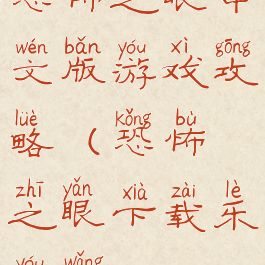 wén bǎn yóu xì gōng
文版游戏攻
lüè kǒng bù
略(恐怖
zhī yǎn xià zài lè
之眼下载乐
yóu wǎng